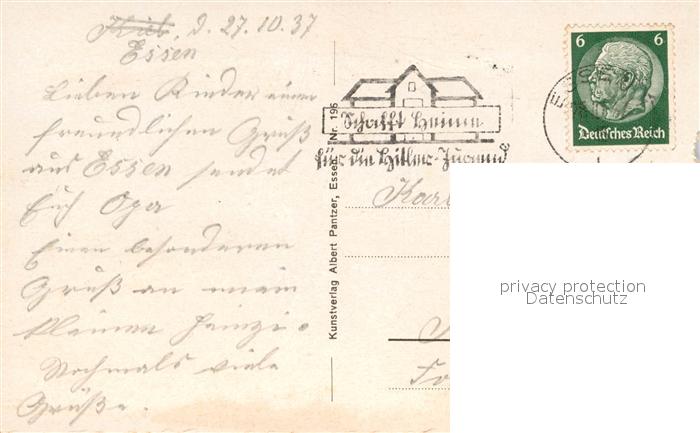 d. 27.10.37
Essen
Lieben Kinder einen
freundlichen Gruß
aus Essen sendet
Euch Opa
Einen besonderen
Gruß an mein
kleinen Heinzi.
Nochmals viele
Grüße.
Kunstverlag Albert Pantzer, Essen, Nr. 195
Schafft Heime
für die Hitler-Jugend
6 6
Deutsches Reich
privacy protection
Datenschutz